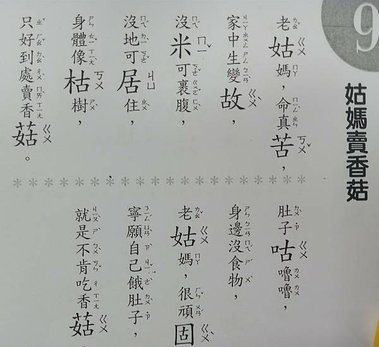 9
姑媽賣香菇
老姑媽，命真苦，
家中生變故，
沒米可裹腹，
沒地可居住，
身體像枯樹，
只好到處賣香菇。
肚子咕嚕嚕，
身邊沒食物，
老姑媽，很頑固
寧願自己餓肚子，
就是不肯吃香菇